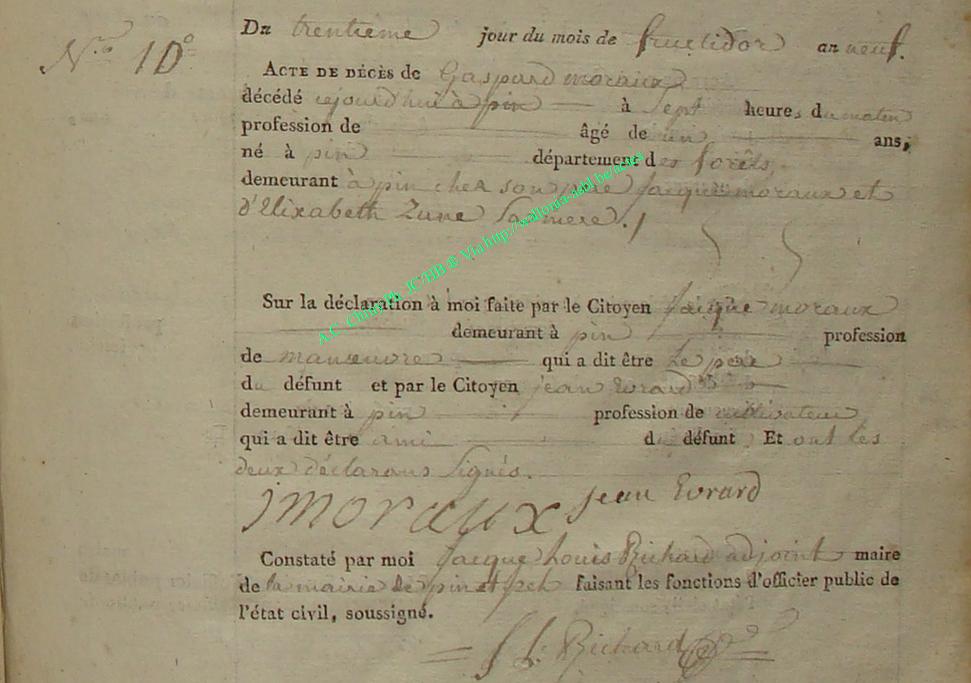 N.ro 10°
Du trentieme jour du mois de fructidor an neuf.
ACTE DE DÉCÈS de Gaspard moraux
décédé cejourd'hui à pin à sept heures du matin
profession de âgé de un ans,
né à pin département des forêts
demeurant à pin chez son pere Jacque moraux et
d'Elixabeth Zune Sa mere./
Sur la déclaration à moi faite par le Citoyen Jacque moraux
demeurant à pin profession
de manœuvre qui a dit être Le père
du défunt et par le Citoyen jean Evrard
demeurant à pin profession de cultivateur
qui a dit être ami du défunt Et ont les
deux déclarans Signés.
jmoraux jean Evrard
Constaté par moi Jacque Louis Richard adjoint maire
de la mairie de pin et faisant les fonctions d'officier public de
l'état civil, soussigné.
J L Richard